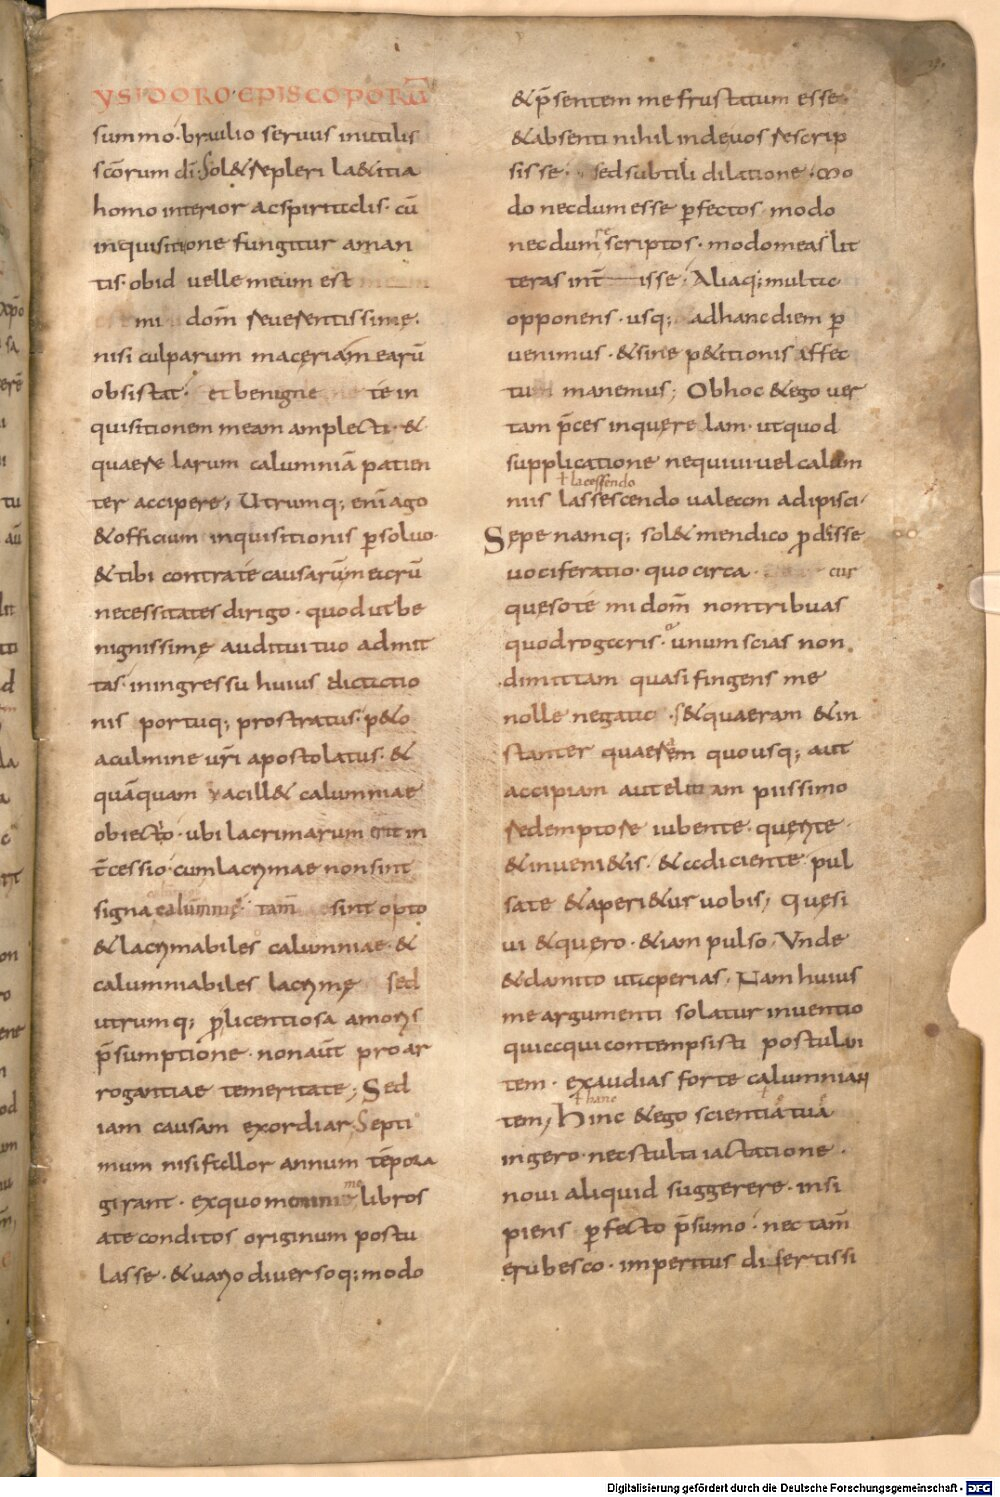 YSIDORO·EPISCOPORŪ
summo· braulio servus inutilis
sc̄orum dī· Sol& repleri la&itia
homo interior ac spiritalis· cū
inquisitione fungitur aman
tis· ob id velle meum est
mi dom̄ reverentissime·
nisi culparum maceriam earū
obsistat· et benigne te in
quisitionem meam amplecti· &
quaerelarum calumniā patien
ter accipere; Utrumq; eni ago
& officium inquisitionis p̄solvo·
& tibi contra te causarūm earū
necessitates dirigo· quod ut be
nignissime auditui tuo admit
tas· in ingressu huius dictatio
nis portuq; prostratus· p&o
a culmine vr̄i apostolatus· &
quāquam vacill& calumniae
obiecto· ubi lacrimarum est in
t̄cessio· cum lacrymae non sint
signa calumnię· tam̄ sint opto
& lacrymabiles calumniae· &
calumniabiles lacrymę sed
utrumq; p̄ licentiosa amoris
p̄sumptione· non aūt pro ar
rogantiae temeritate; Sed
iam causam exordiar; Septi
mum nisi fallor annum tēpora
girant· ex quo memini me libros
a te conditos originum postu
lasse· & vario diversoq; modo
& p̄sentem me frustatum esse·
& absenti nihil inde vos rescrip
sisse· sed subtili dilatione· mo
do necdum esse p̄fectos· modo
necdum scriptos· modo meas lit
teras int̄ isse· Aliaq; multa
opponens· usq; ad hanc diem p̄
venimus· & sine p&itionis affec
tu manemus; Ob hoc & ego ver
tam p̄ces in querelam· ut quod
supplicatione nequivi vel calum
ł lacessendo
niis lassescendo valeam adipisci·
Sepe namq; sol& mendico p̄disse
vociferatio· quo circa cur
queso te mi dom̄ non tribuas
quod rogaris· unum scias non
dimittam quasi fingens me
nolle negata· s& quaeram & in
stanter quaerem quousq; aut
accipiam aut elitam piissimo
redemptore iubente· querite·
& inveni&is· & adiciente· pul
sate & aperi&ur vobis; Quesi
vi & quero· & iam pulso· Unde
& clamito ut aperias· Nam huius
me argumenti solatur inventio
quia qui contempsisti postulan
tem· exaudias forte calumnian
ł hanc
tem; Hinc & ego scientiā tuā
ingero· nec stulti iactatione·
novi aliquid suggerere· insi
piens p̄fecto p̄sumo· nec tam̄
erubesco· imperitus disertissi
Digitalisierung gefördert durch die Deutsche Forschungsgemeinschaft - DFG